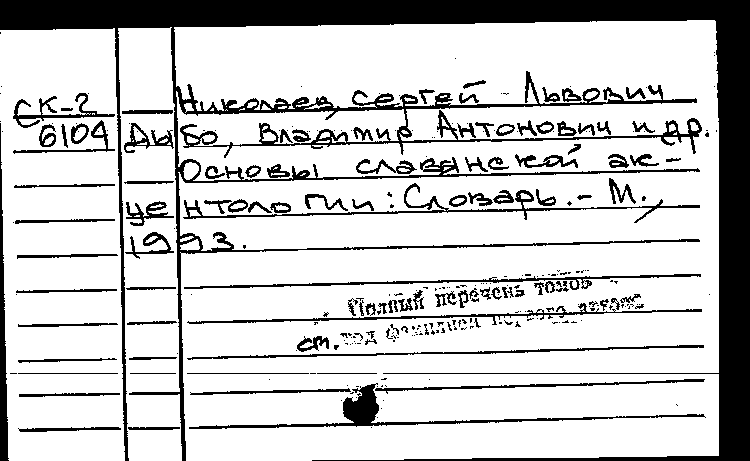 СК-2 Николаев, Сергей Львович
6104 Дыбо, Владимир Антонович и др.
Основы славянской ак-
центологии: Словарь. - М.,
1993.
Полный перечень томов
см. под фамилией первого автора